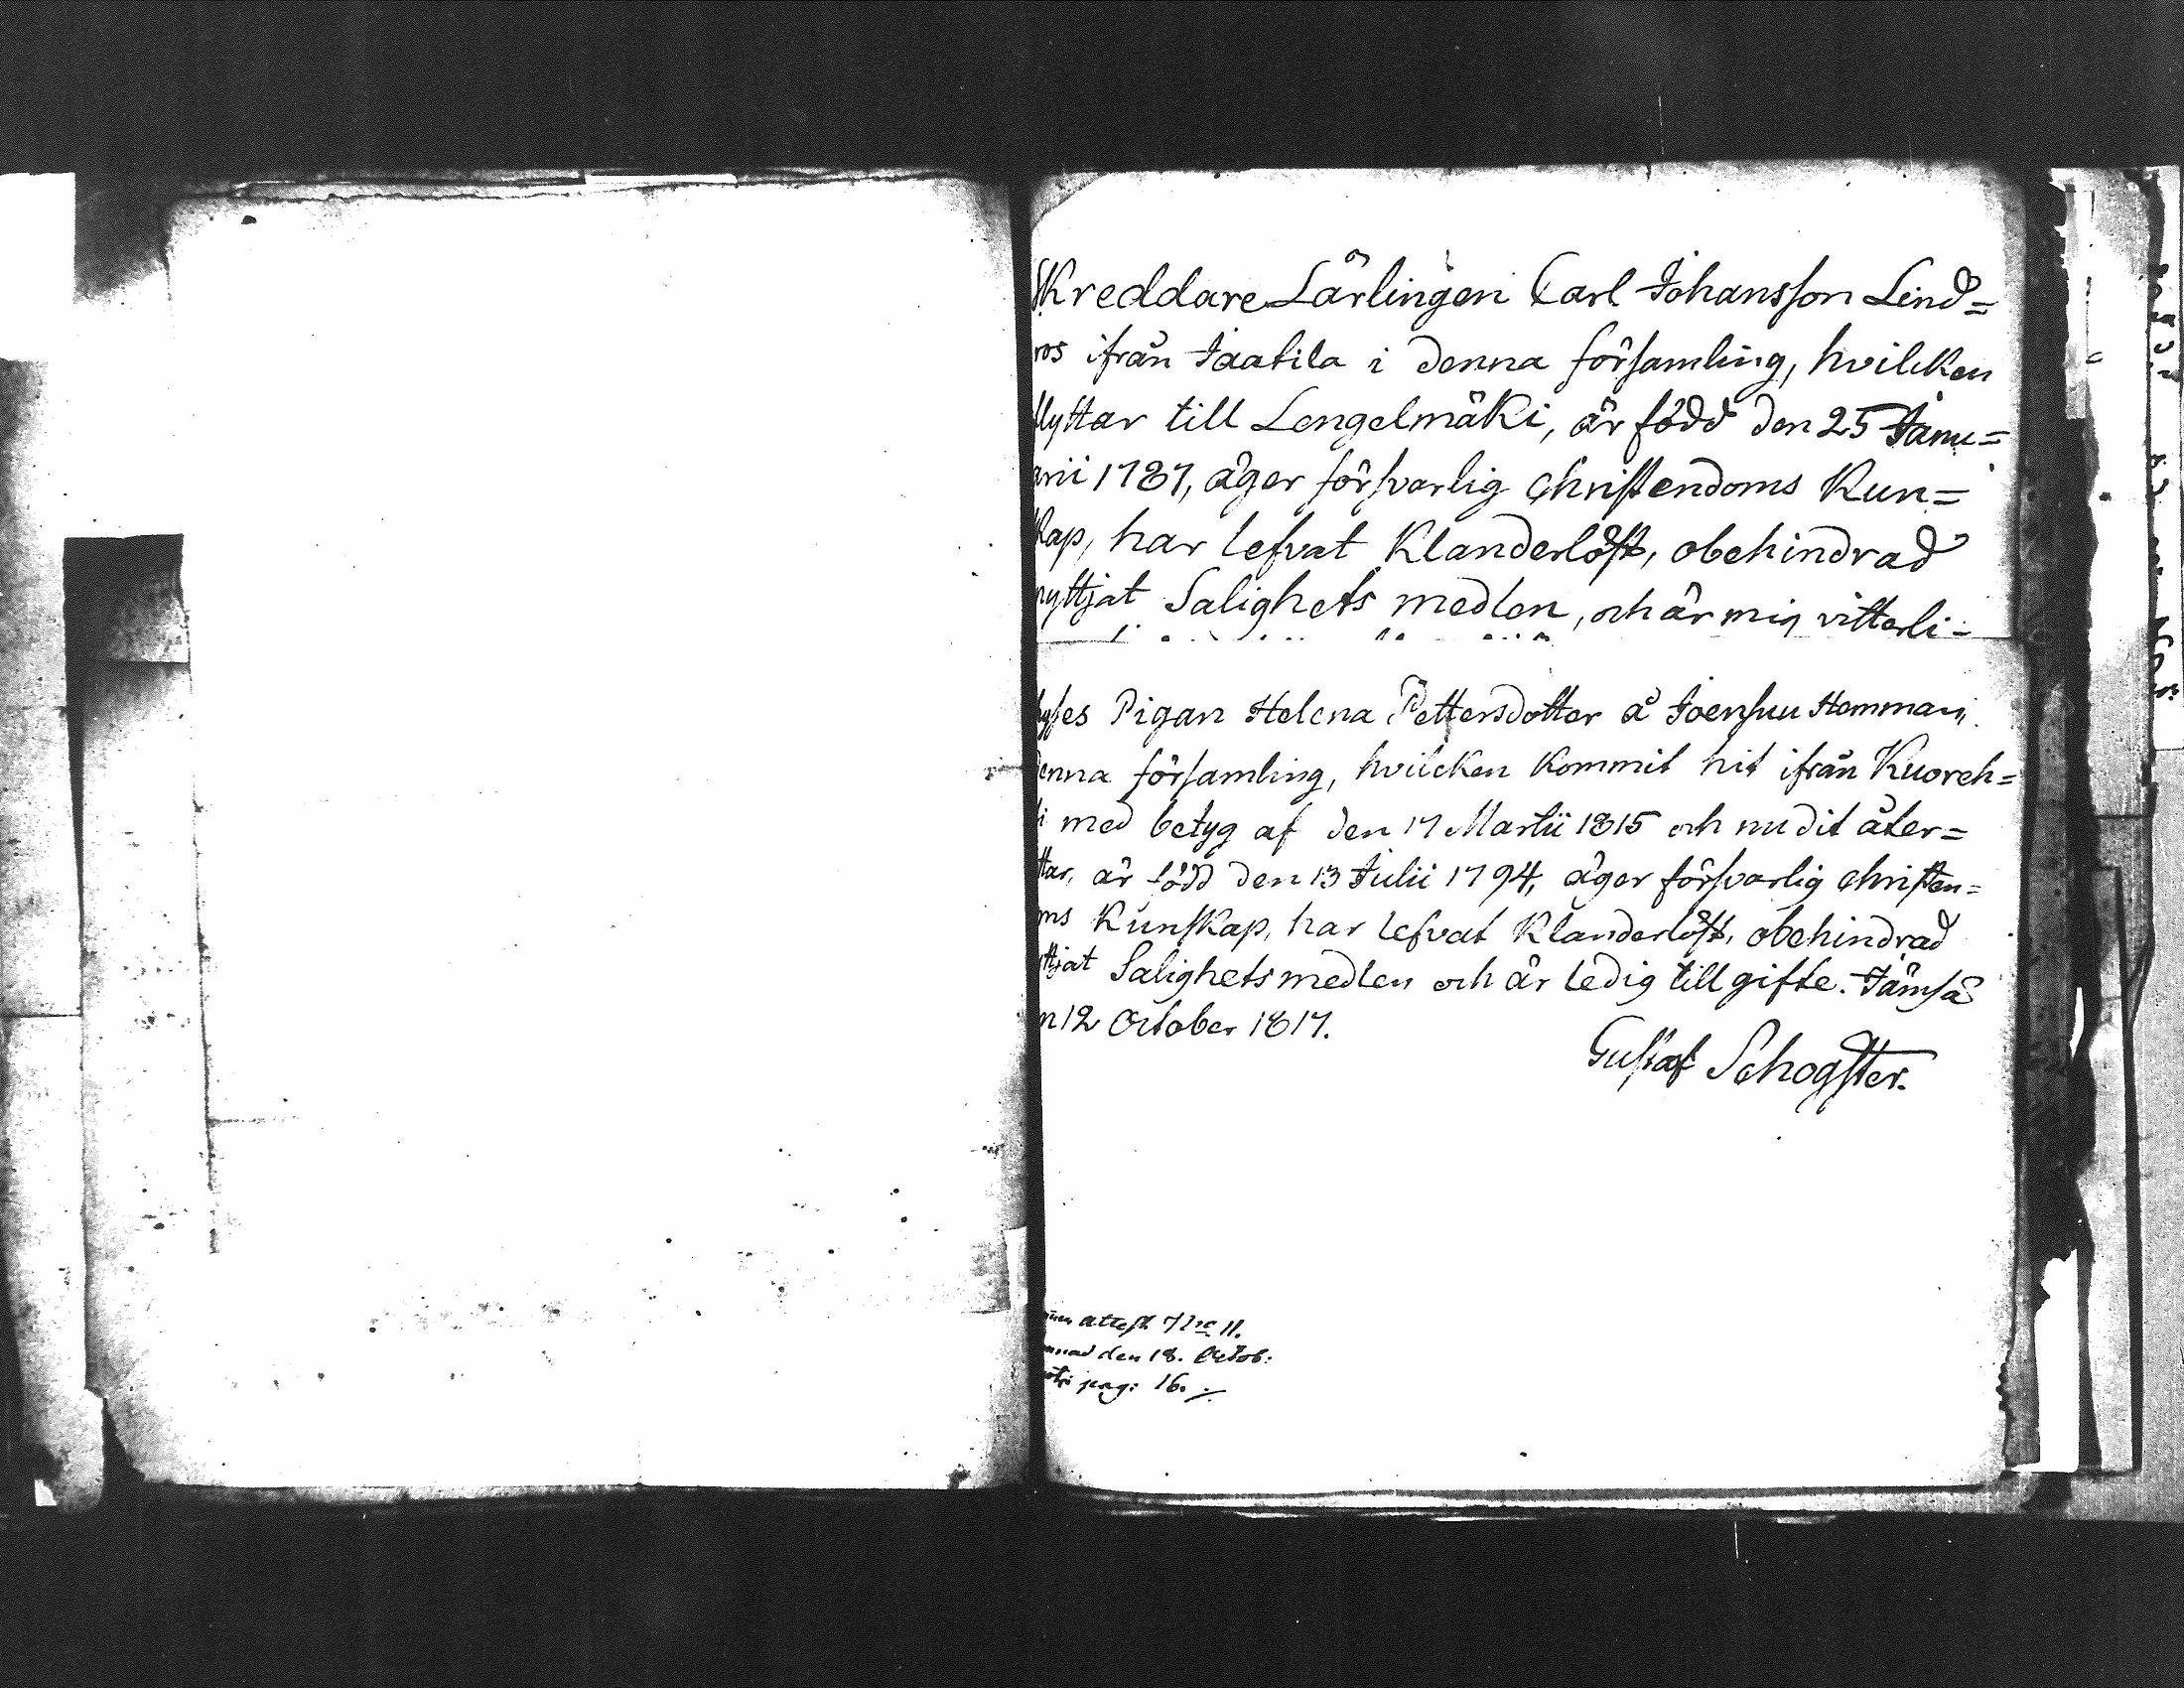 Skreddare Lärlingen Carl Johansson Lind=
ros ifrån Jaatila i denna församling, hvilcken
flyttar till Lengelmäki, är född den 25 Janu=
arii 1787, äger försvarlig Christendoms Kun=
kap, har lefvat Klanderlöst, obehindrad
nyttjat Salighets medlen, och är mig vitterli=
Pigan Helena Pettersdotter å Joensuu Hemman i
denna församling, hvilcken Kommit hit ifrån Kuoreh=
i med betyg af den 17 Martii 1815 och nu dit åter=
ttar, är född den 13 Julii 1794, äger försvarlig Christen=
ms Kunskap, har lefvat Klanderlöst, obehindrad
ttjat Salighetsmedlen och är ledig till gifte. Jämsä
n 12 October 1817.
Gustaf Schogster.
attest
mnad den 18. Octob:
pag: 16.